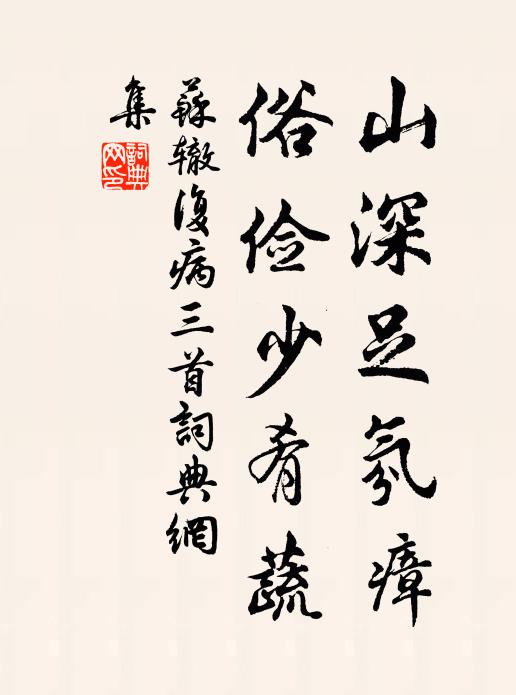 山深足氛瘴
俗俭少肴蔬
蘇辙復病三首詞典網
集
詞典
网印